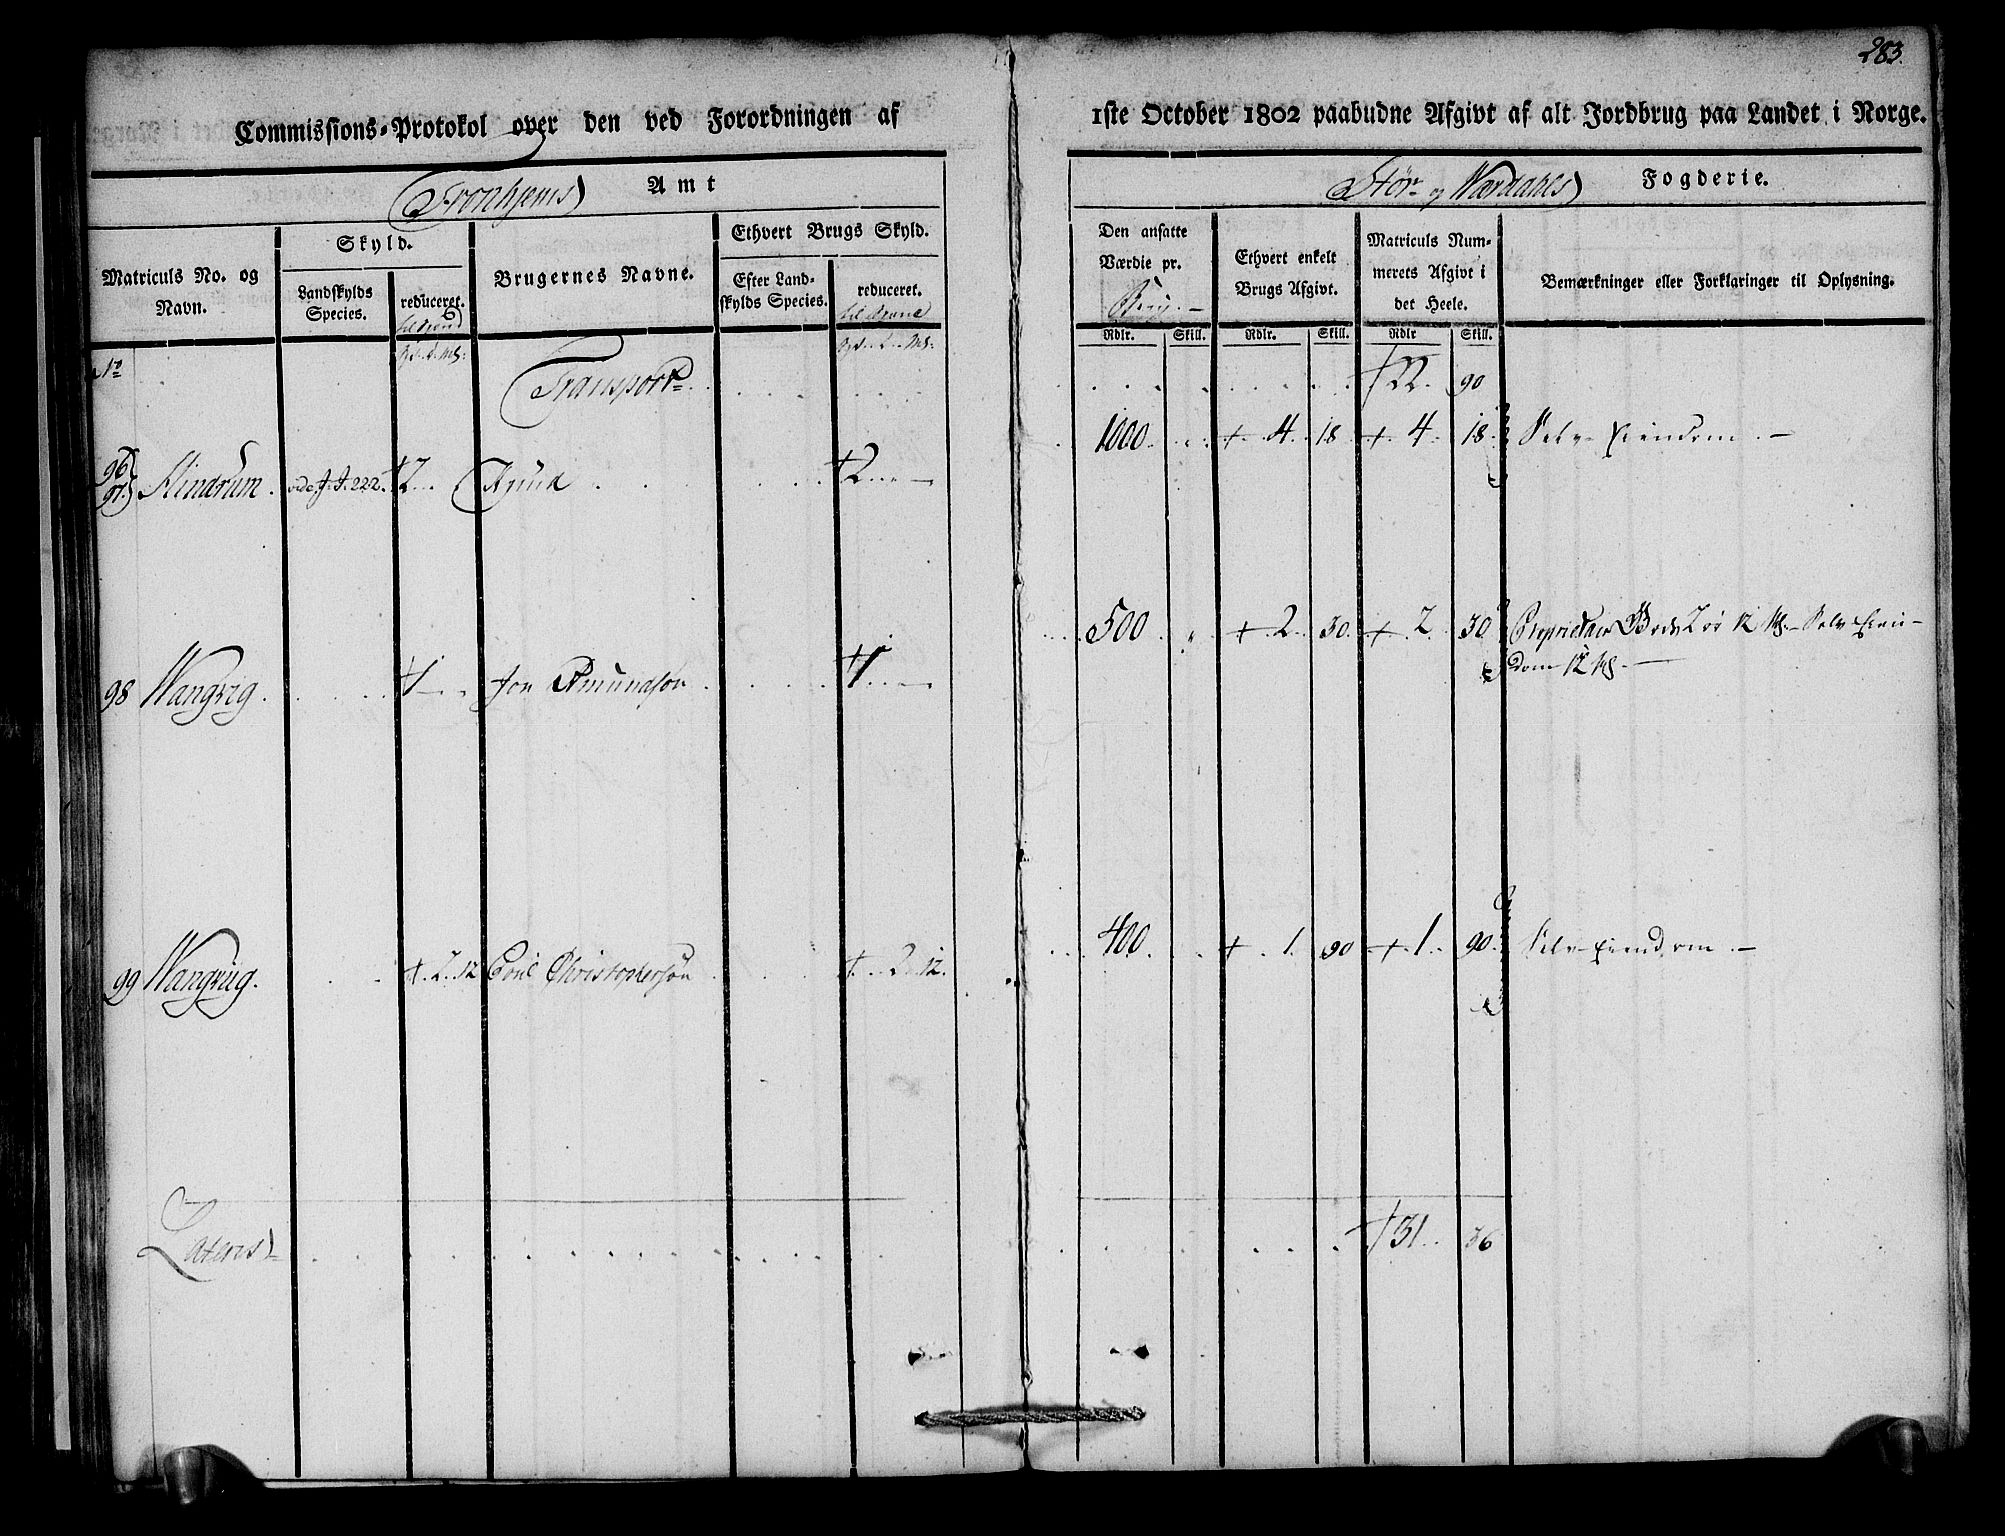 283.
Commissions-Protokol over den ved Forordningen af 1ste October 1802 paabudne Afgivt af alt Jordbrug paa Landet i Norge.
Tronhjems Amt
Stør- og Værdahls Fogderie.
Matriculs No. og Navn.
Skyld.
Landskylds Species.
reduceret.
Brugernes Navne.
Ethvert Brugs Skyld.
Efter Landskylds Species.
reduceret.
Den ansatte Værdie pr. Brug.
Ethvert enkelt Brugs Afgivt.
Matriculs Nummerets Afgivt i det Heele.
Bemærkninger eller Forklaringer til Oplysning.
Rdlr. Skill. Rdlr. Skill. Rdlr Skill.
Transport 22. 90
96 97. Mindrum. 222. 2 2 1000. 4. 18 4. 18. Selv-Eiendom.
98 Wangvig. 1 Jon Amundsøn 1 500 2. 30. 2. 30 Proprietair 12 Selv Eien-
dom 12
99 Wangvig. 2. 12 Poul Christophersøn 2. 12. 400. 1. 90 1. 90. Selv-Eiendom.
Lateris 31. 36